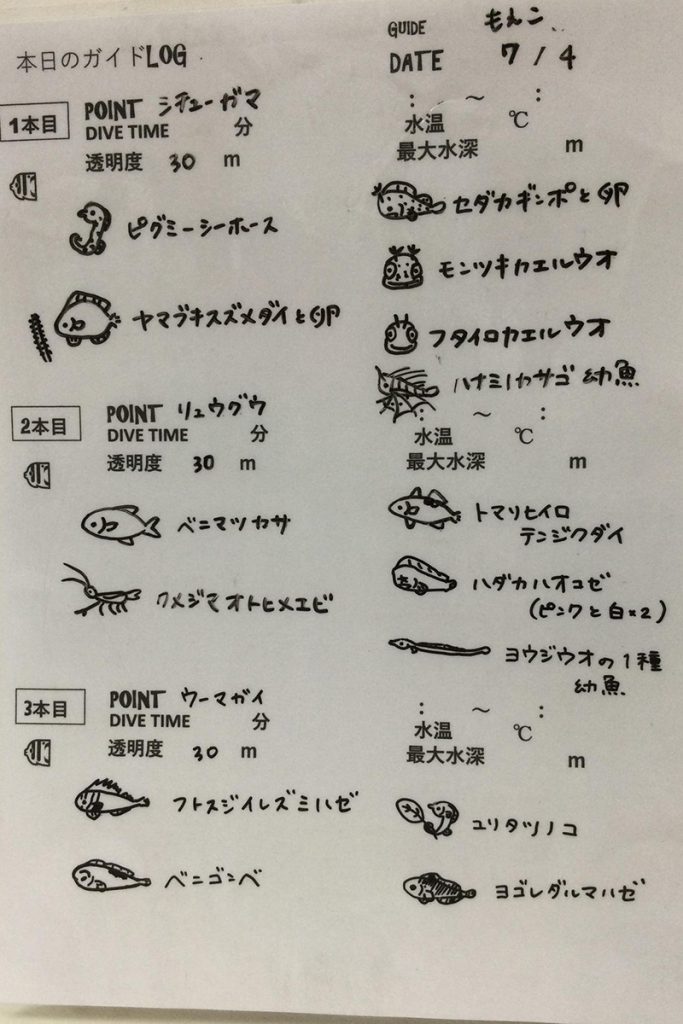 本日のガイドLOG
GUIDE もえこ
DATE 7/4
1本目 POINT シチューガマ : ～ :
DIVE TIME 分 水温 ℃
透明度 30 m 最大水深 m
ピグミーシーホース
ヤマブキスズメダイと卵
セダカギンポと卵
モンツキカエルウオ
フタイロカエルウオ
ハナミノカサゴ 幼魚
2本目 POINT リュウグウ : ～ :
DIVE TIME 分 水温 ℃
透明度 30 m 最大水深 m
ベニマツカサ
クメジマオトヒメエビ
トマリヒイロ
テンジクダイ
ハダカハオコゼ
(ピンクと白×2)
ヨウジウオの1種
幼魚
3本目 POINT ウーマガイ : ～ :
DIVE TIME 分 水温 ℃
透明度 30 m 最大水深 m
フトスジイレズミハゼ
ベニゴンベ
ユリタツノコ
ヨゴレダルマハゼ